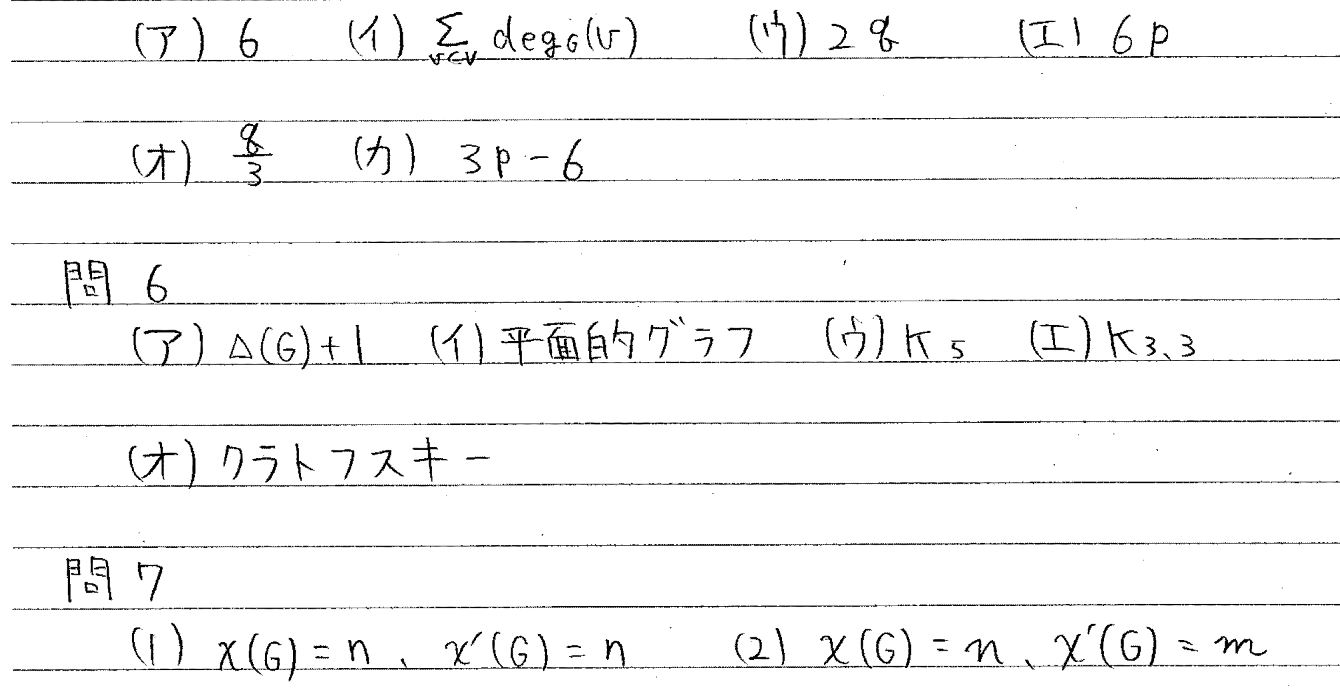 (ア) 6 (イ) Σ_{v∈V} deg_G(v) (ウ) 2q (エ) 6p
(オ) q/3 (カ) 3p-6
問 6
(ア) Δ(G)+1 (イ) 平面的グラフ (ウ) K_5 (エ) K_{3、3}
(オ) クラトフスキー
問 7
(1) χ(G)=n、χ'(G)=n (2) χ(G)=n、χ'(G)=m